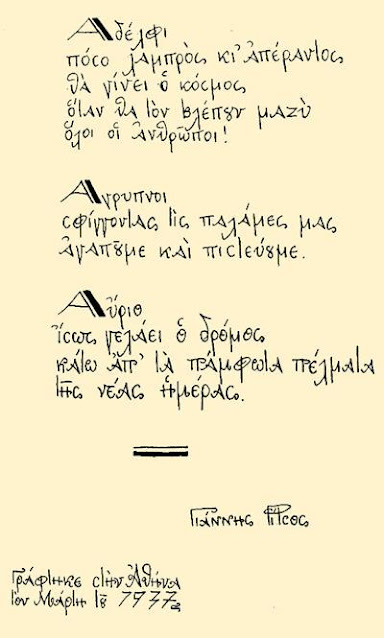 Αδέλφι
πόσο λαμπρὸς κι' ἀπέραντος
θὰ γίνει ὁ κόσμος
ὅταν θὰ τὸν βλέπουν μαζὺ
ὅλοι οἱ ἄνθρωποι!
Αγρυπνοι
σφίγγοντας τὶς παλάμες μας
ἀγαποῦμε καὶ πιστεύουμε.
Αὔριο
ἴσως γελάει ὁ δρόμος
κάτω ἀπ' τὰ πάμφωτα πέλματα
τῆς νέας ἡμέρας.
Γιάννης Ρίτσος
Γράφτηκε στὴν Ἀθήνα
τὸν Μάρτη τοῦ